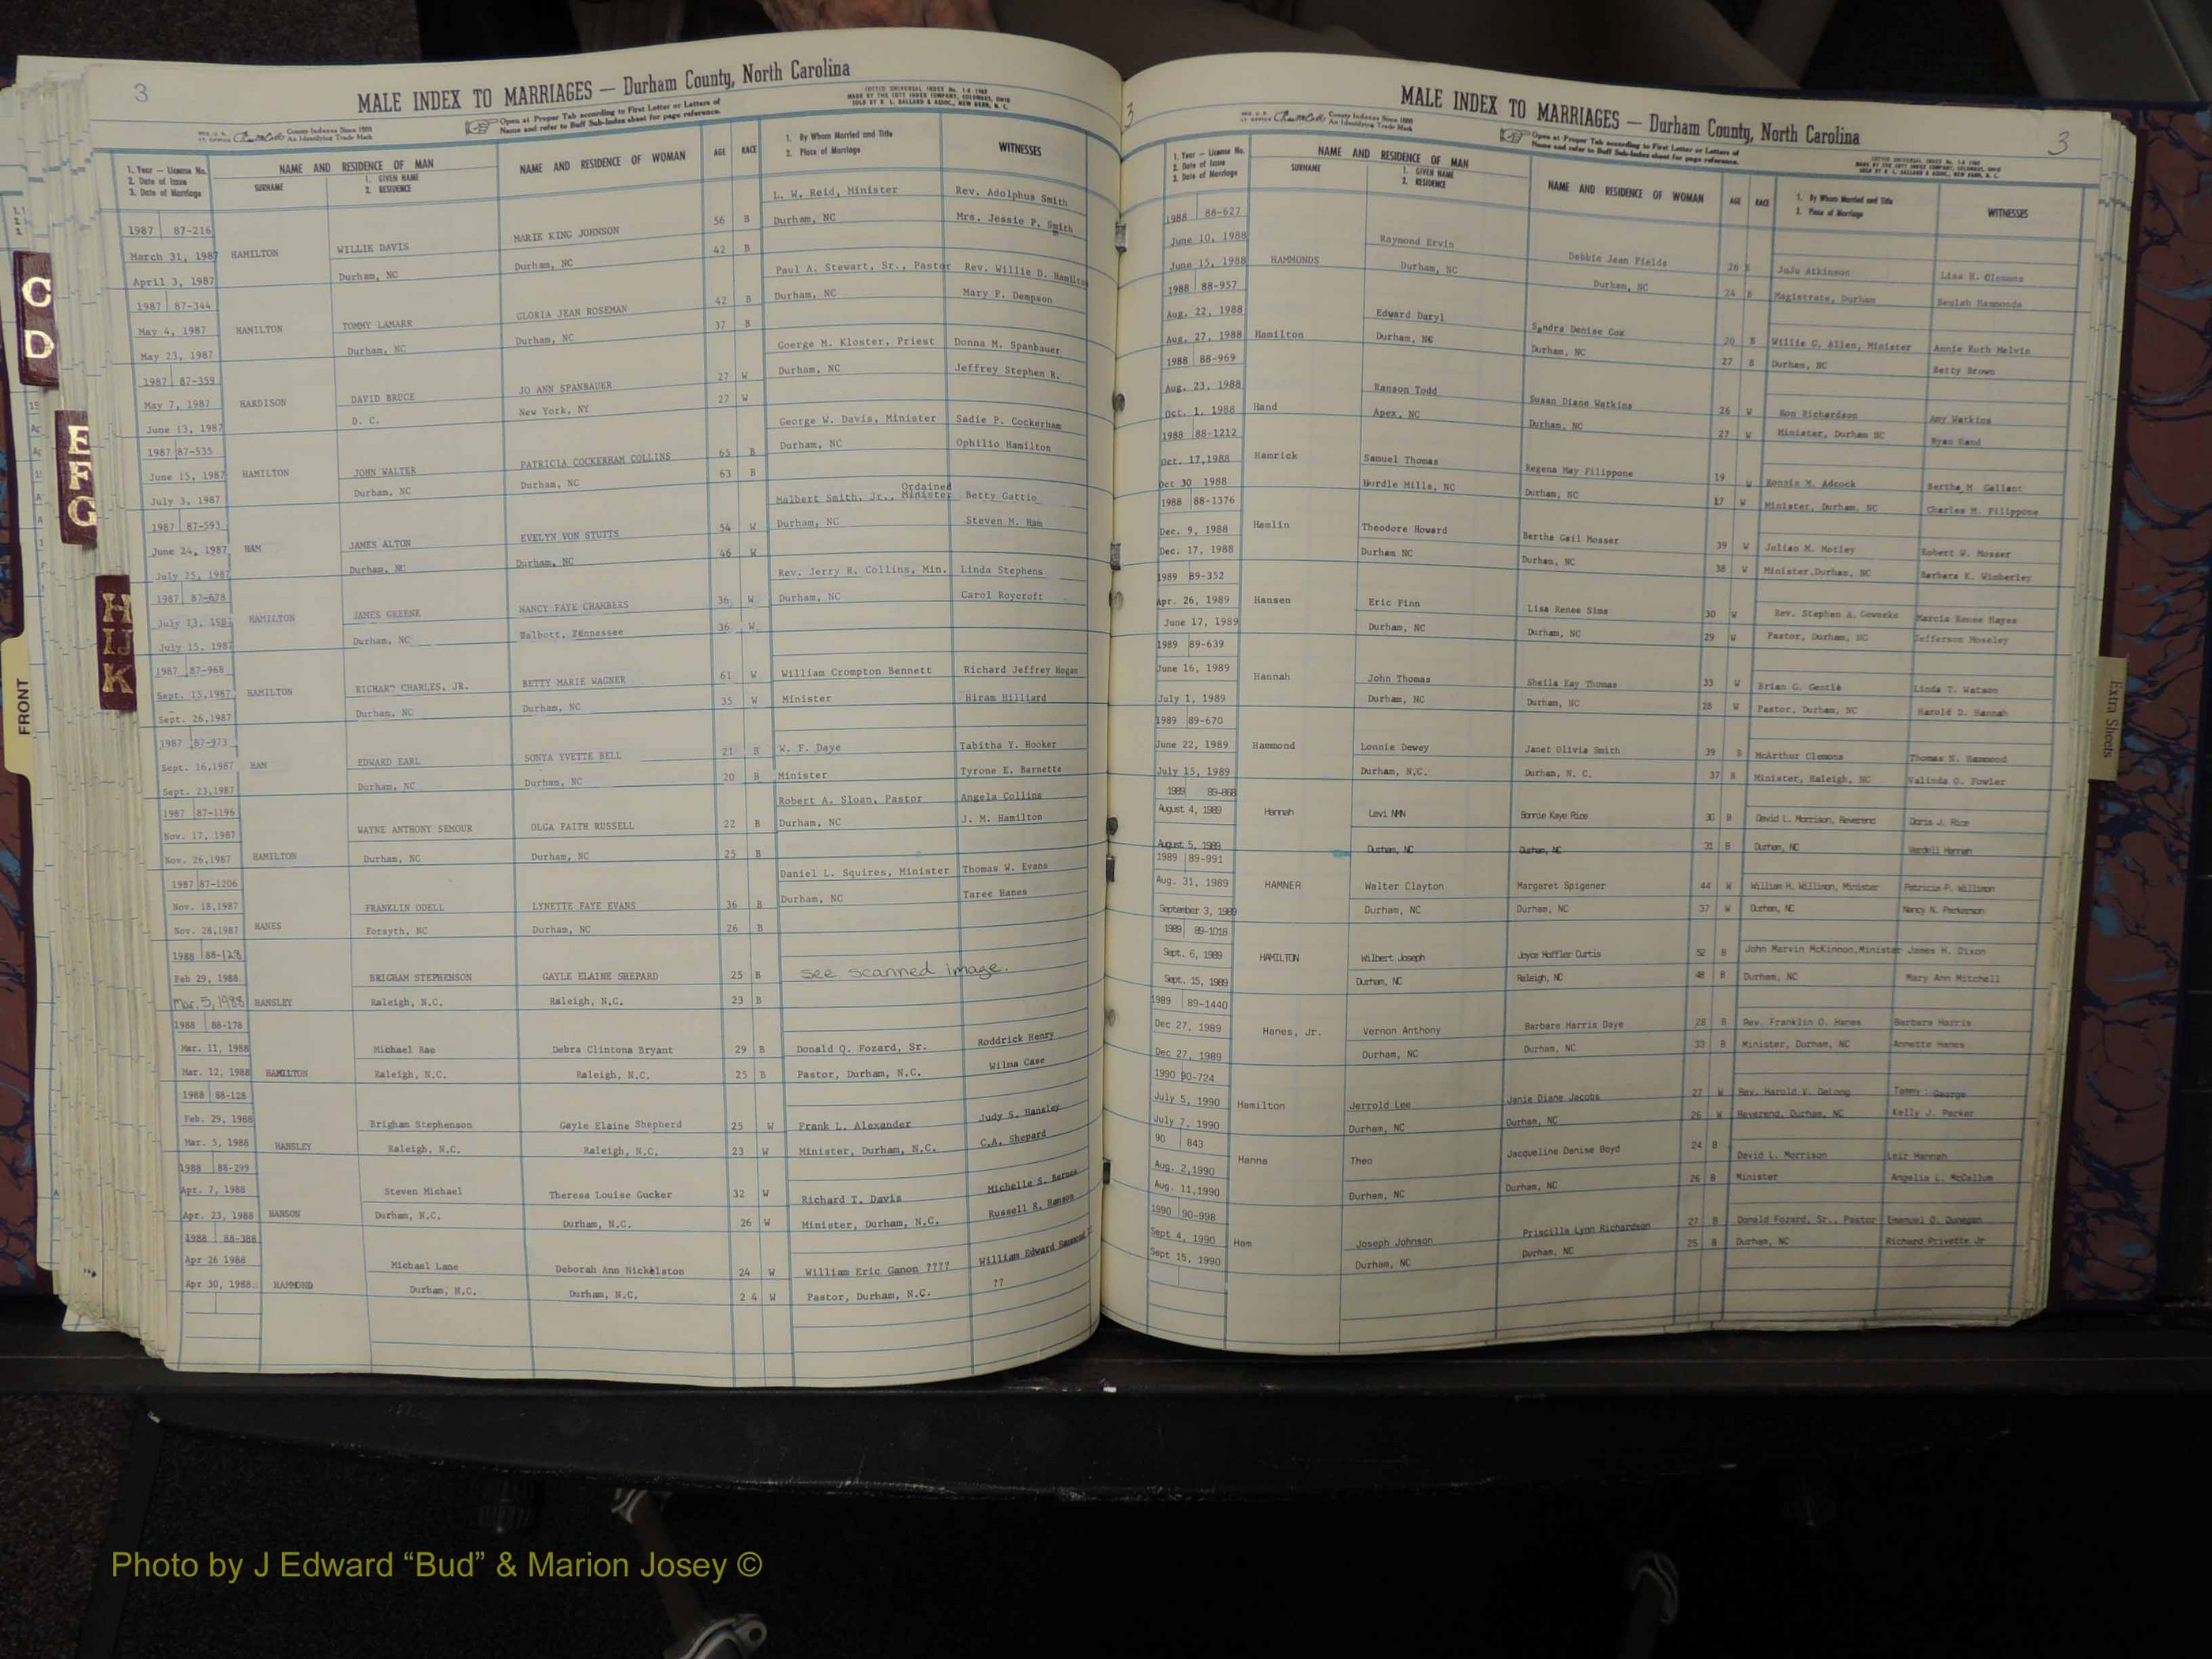 3
MALE INDEX TO MARRIAGES — Durham County, North Carolina
COTT'S UNIVERSAL INDEX
MADE BY THE COTT INDEX COMPANY, COLUMBUS, OHIO
SOLD BY B. L. BALLARD & ASSOC., NEW BERN, N. C.
County Indexes Since 1888
An Identifying Trade Mark
Open at Proper Tab according to First Letter or Letters of
Name and refer to Buff Sub-Index sheet for page reference.
1. Year — License No. 2. Date of Issue 3. Date of Marriage
NAME AND RESIDENCE OF MAN
SURNAME 1. GIVEN NAME 2. RESIDENCE
NAME AND RESIDENCE OF WOMAN
AGE RACE
1. By Whom Married and Title 2. Place of Marriage
WITNESSES
1987 87-216 L. W. Reid, Minister Rev. Adolphus Smith
March 31, 1987 HAMILTON WILLIE DAVIS MARIE KING JOHNSON 56 B Durham, NC Mrs. Jessie P. Smith
April 3, 1987 Durham, NC Durham, NC 42 B
1987 87-344 Paul A. Stewart, Sr., Pastor Rev. Willie D. Hamilton
May 4, 1987 HAMILTON TOMMY LAMARR GLORIA JEAN ROSEMAN 42 B Durham, NC Mary P. Dempson
May 23, 1987 Durham, NC Durham, NC 37 B
1987 87-359 Goerge M. Kloster, Priest Donna M. Spanbauer
May 7, 1987 HARDISON DAVID BRUCE JO ANN SPANBAUER 27 W Durham, NC Jeffrey Stephen R.
June 13, 1987 D. C. New York, NY 27 W
1987 87-535 George W. Davis, Minister Sadie P. Cockerham
June 15, 1987 HAMILTON JOHN WALTER PATRICIA COCKERHAM COLLINS 65 B Durham, NC Ophilio Hamilton
July 3, 1987 Durham, NC Durham, NC 63 B
1987 87-593 Malbert Smith, Jr., Ordained Minister Betty Gattis
June 24, 1987 HAM JAMES ALTON EVELYN VON STUTTS 54 W Durham, NC Steven M. Ham
July 25, 1987 Durham, NC Durham, NC 46 W
1987 87-678 Rev. Jerry R. Collins, Min. Linda Stephens
July 13, 1987 HAMILTON JAMES GREENE NANCY FAYE CHAMBERS 36 W Durham, NC Carol Roycroft
July 15, 1987 Durham, NC Talbott, Tennessee 36 W
1987 87-968 William Crompton Bennett Richard Jeffrey Hogan
Sept. 15,1987 HAMILTON RICHARD CHARLES, JR. BETTY MARIE WAGNER 61 W Minister Hiram Hilliard
Sept. 26,1987 Durham, NC Durham, NC 35 W
1987 87-973 W. F. Daye Tabitha Y. Hooker
Sept. 16,1987 HAM EDWARD EARL SONYA YVETTE BELL 21 B Minister Tyrone E. Barnette
Sept. 23,1987 Durham, NC Durham, NC 20 B
1987 87-1196 Robert A. Sloan, Pastor Angela Collins
Nov. 17, 1987 WAYNE ANTHONY SEMOUR OLGA FAITH RUSSELL 22 B Durham, NC J. M. Hamilton
Nov. 26,1987 HAMILTON Durham, NC Durham, NC 25 B
1987 87-1206 Daniel L. Squires, Minister Thomas W. Evans
Nov. 18,1987 FRANKLIN ODELL LYNETTE FAYE EVANS 36 B Durham, NC Taree Hanes
Nov. 28,1987 HANES Forsyth, NC Durham, NC 26 B
1988 88-128
Feb 29, 1988 BRIGHAM STEPHENSON GAYLE ELAINE SHEPARD 25 B see scanned image.
Mar. 5, 1988 HANSLEY Raleigh, N.C. Raleigh, N.C. 23 B
1988 88-178
Mar. 11, 1988 Michael Rae Debra Clintona Bryant 29 B Donald Q. Fozard, Sr. Roddrick Henry
Mar. 12, 1988 HAMILTON Raleigh, N.C. Raleigh, N.C. 25 B Pastor, Durham, N.C. Wilma Case
1988 88-128
Feb. 29, 1988 Brigham Stephenson Gayle Elaine Shepherd 25 W Frank L. Alexander Judy S. Hansley
Mar. 5, 1988 HANSLEY Raleigh, N.C. Raleigh, N.C. 23 W Minister, Durham, N.C. C.A. Shepard
1988 88-299
Apr. 7, 1988 Steven Michael Theresa Louise Gucker 32 W Richard T. Davis Michelle S. Bernes
Apr. 23, 1988 HANSON Durham, N.C. Durham, N.C. 26 W Minister, Durham, N.C. Russell R. Hanson
1988 88-388
Apr 26 1988 Michael Lane Deborah Ann Nickelston 24 W William Eric Ganon ???? William Edward Hammond
Apr 30, 1988 HAMMOND Durham, N.C. Durham, N.C. 2 4 W Pastor, Durham, N.C. ??
3
MALE INDEX TO MARRIAGES — Durham County, North Carolina
3
County Indexes Since 1888
An Identifying Trade Mark
Open at Proper Tab according to First Letter or Letters of
Name and refer to Buff Sub-Index sheet for page reference.
1. Year — License No. 2. Date of Issue 3. Date of Marriage
NAME AND RESIDENCE OF MAN
SURNAME 1. GIVEN NAME 2. RESIDENCE
NAME AND RESIDENCE OF WOMAN
AGE RACE
1. By Whom Married and Title 2. Place of Marriage
WITNESSES
1988 88-627
June 10, 1988 Raymond Ervin Debbie Jean Fields 26 B JuJu Atkinson Lisa H. Clemons
June 15, 1988 HAMMONDS Durham, NC Durham, NC 24 B Magistrate, Durham Beulah Hammonds
1988 88-957
Aug. 22, 1988 Edward Daryl Sandra Denise Cox 20 B Willie C. Allen, Minister Annie Ruth Melvin
Aug. 27, 1988 Hamilton Durham, NC Durham, NC 27 B Durham, NC Betty Brown
1988 88-969
Aug. 23, 1988 Ranson Todd Susan Diane Watkins 26 W Ron Richardson Amy Watkins
Oct. 1, 1988 Hand Apex, NC Durham, NC 27 W Minister, Durham NC Ryan Hand
1988 88-1212
Oct. 17,1988 Hamrick Samuel Thomas Regena May Filippone 19 W Ronnie M. Adcock Bertha M Gallant
Oct 30 1988 Hurdle Mills, NC Durham, NC 17 W Minister, Durham, NC Charles M. Filippone
1988 88-1376
Dec. 9, 1988 Hamlin Theodore Howard Bertha Gail Mosser 39 W Julian M. Motley Robert W. Mosser
Dec. 17, 1988 Durham NC Durham, NC 38 W Minister,Durham, NC Barbara K. Wimberley
1989 89-352
Apr. 26, 1989 Hansen Eric Finn Lisa Renee Sims 30 W Rev. Stephen A. Goweeke Marcia Renee Hayes
June 17, 1989 Durham, NC Durham, NC 29 W Pastor, Durham, NC Jefferson Moseley
1989 89-639
June 16, 1989 Hannah John Thomas Sheila Kay Thomas 33 W Brian G. Gentle Linda T. Watson
July 1, 1989 Durham, NC Durham, NC 28 W Pastor, Durham, NC Harold D. Hannah
1989 89-670
June 22, 1989 Hammond Lonnie Dewey Janet Olivia Smith 39 B McArthur Clemons Thomas N. Hammond
July 15, 1989 Durham, N.C. Durham, N. C. 37 B Minister, Raleigh, NC Valinda O. Fowler
1989 89-868
August 4, 1989 Hannah Levi NMN Bonnie Kaye Rice 30 B David L. Morrison, Reverend Doris J. Rice
August 5, 1989 Durham, NC Durham, NC 31 B Durham, NC Verdell Hannah
1989 89-991
Aug. 31, 1989 HAMNER Walter Clayton Margaret Spigener 44 W William H. Willimon, Minister Patricia P. Willimon
September 3, 1989 Durham, NC Durham, NC 37 W Durham, NC Nancy N. Parkerson
1989 89-1018
Sept. 6, 1989 HAMILTON Wilbert Joseph Joyce Hoffler Curtis 52 B John Marvin McKinnon,Minister James H. Dixon
Sept. 15, 1989 Durham, NC Raleigh, NC 48 B Durham, NC Mary Ann Mitchell
1989 89-1440
Dec 27, 1989 Hanes, Jr. Vernon Anthony Barbara Harris Daye 28 B Rev. Franklin O. Hanes Barbara Harris
Dec 27, 1989 Durham, NC Durham, NC 33 B Minister, Durham, NC Annette Hanes
1990 90-724
July 5, 1990 Hamilton Jerrold Lee Janie Diane Jacobs 27 W Rev. Harold V. DeLong Tammy George
July 7, 1990 Durham, NC Durham, NC 26 W Reverend, Durham, NC Kelly J. Parker
90 843
Aug. 2,1990 Hanna Theo Jacqueline Denise Boyd 24 B David L. Morrison Hannah
Aug. 11,1990 Durham, NC Durham, NC 26 B Minister Angelia L. McCallum
1990 90-998
Sept 4, 1990 Ham Joseph Johnson Priscilla Lynn Richardson 27 B Donald Fozard, Sr., Pastor Emanuel D. Dunegan
Sept 15, 1990 Durham, NC Durham, NC 25 B Durham, NC Richard Privette Jr
C
D
E
F
G
H
IJ
K
FRONT
Extra Sheets
Photo by J Edward “Bud” & Marion Josey ©